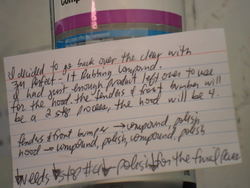 Comp
I decided to go back over the clear with
3M Perfect-It Rubbing compound.
I had just enough product left over to use
for the hood, the fenders & front bumper will
be a 2 step process, the hood will be 4.
fenders & front bumper → compound, polish
hood → compound, polish, compound, polish
Needs step #4 polish for the final phase